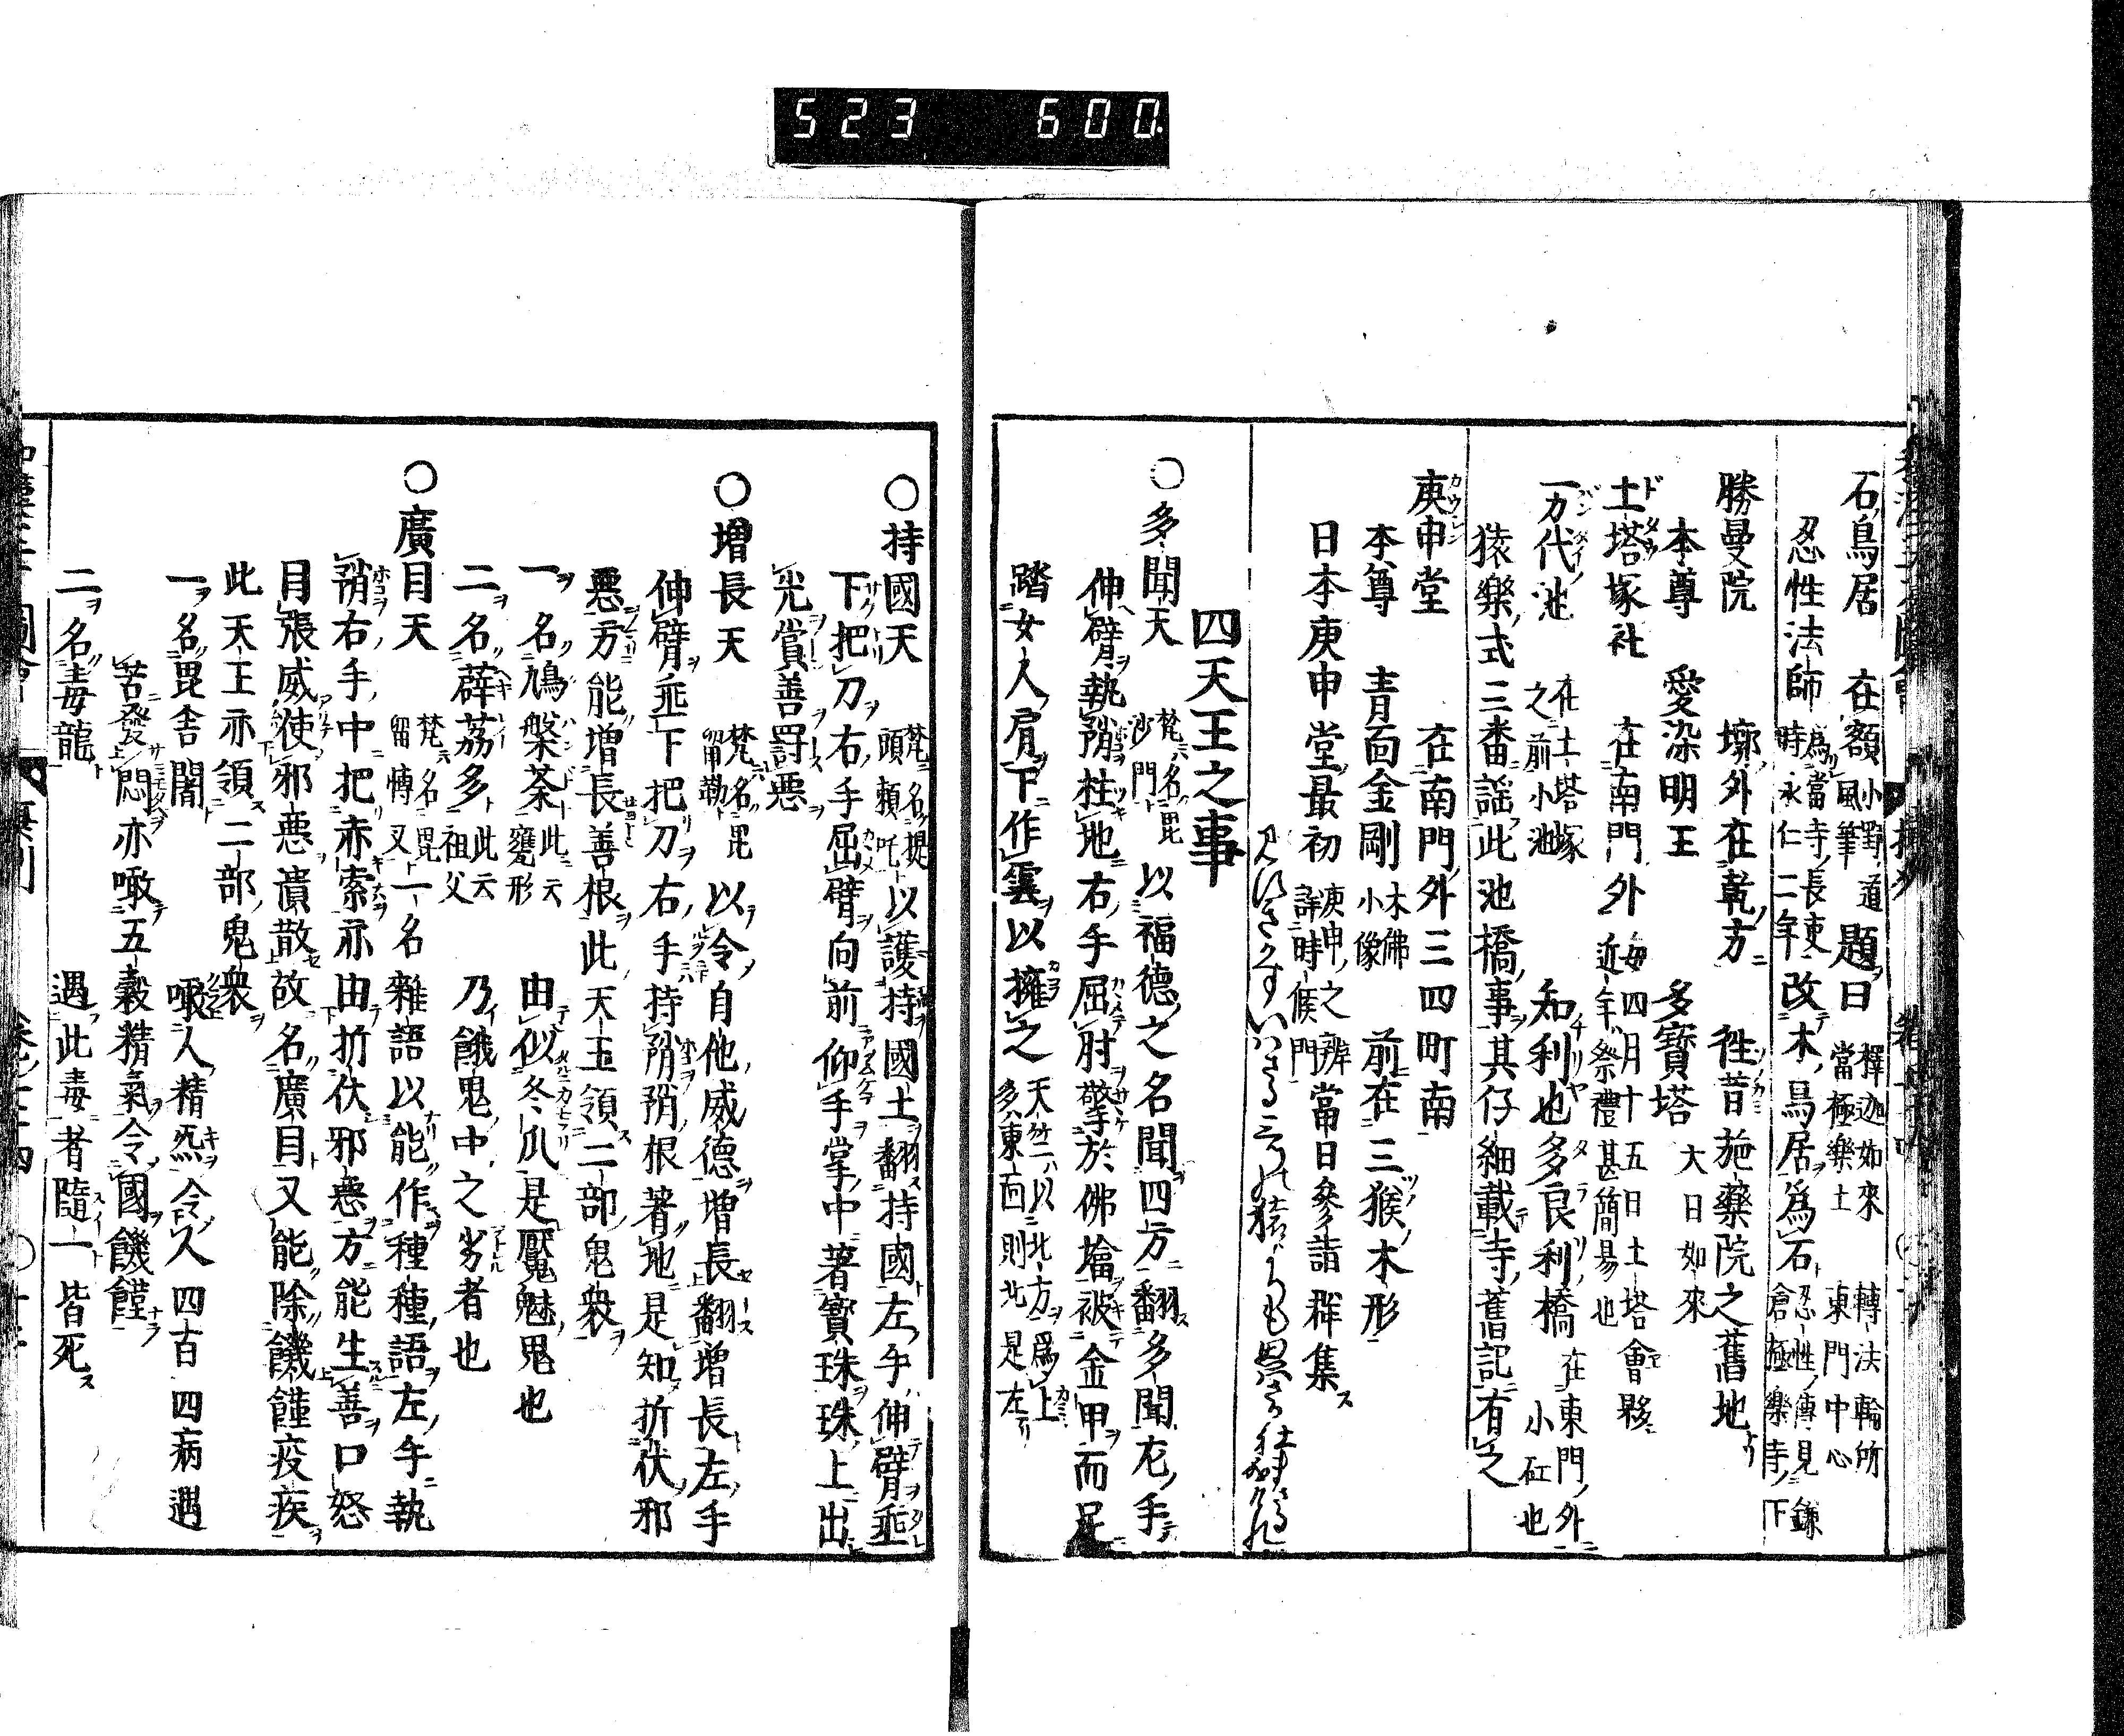 523 600.
石鳥居 在額 小野道風筆 題曰 釋迦如來 轉法輪所 當極樂土 東門中心
忍性法師 爲當寺長吏 時永仁二年 改木鳥居爲石 忍性傳見鎌倉極樂寺下
勝曼院 墎外在乾方 徃昔施藥院之舊地
本尊 愛染明王 多寶塔 大日如來
土塔塚社 在南門外 毎四月十五日土塔會 近年祭禮甚簡易也
万代池 在土塔塚之前小池 知利也多良利橋 在東門外小矼也
猿樂式三番謡此池橋事其仔細載寺舊記有之
庚申堂 在南門外三四町南
本尊 青面金剛 木佛小像 前在三猴木形
日本庚申堂最初 庚申之辨詳時候門 當日參詣群集
四天王之事
〇多聞天 梵名毘沙門 以福德之名聞四方翻多聞左手
伸臂執矟柱地右手屈肘擎於佛塔被金甲而足
踏女人肩下作雲以擁之 天竺以北方爲上 多東面則北是左
〇持國天 梵名提頭頼吒 以護持國土翻持國左手伸臂垂
下把刀右手屈臂向前仰手掌中著寳珠珠上出
光賞善罸惡
〇増長天 梵名毘留勒 以令自他威德増長翻増長左手
伸臂垂下把刀右手持矟矟根著地是知折伏邪
惡方能増長善根此天王領二部鬼衆
一名鳩槃荼 此云甕形 由似冬瓜是魘魅鬼也
二名薜茘多 此云祖父 乃餓鬼中之劣者也
〇廣目天 梵名毘留愽叉 一名雜語以能作種種語左手執
矟右手中把赤索亦由折伏邪惡方能生善口怒
目張威使邪惡潰散故名廣目又能除饑饉疫疾
此天王亦領二部鬼衆
一名毘舎闍 噉人精炁令人四百四病遇
苦發悶亦噉五穀精氣令國饑饉
二名毒龍 遇此毒者隨一皆死